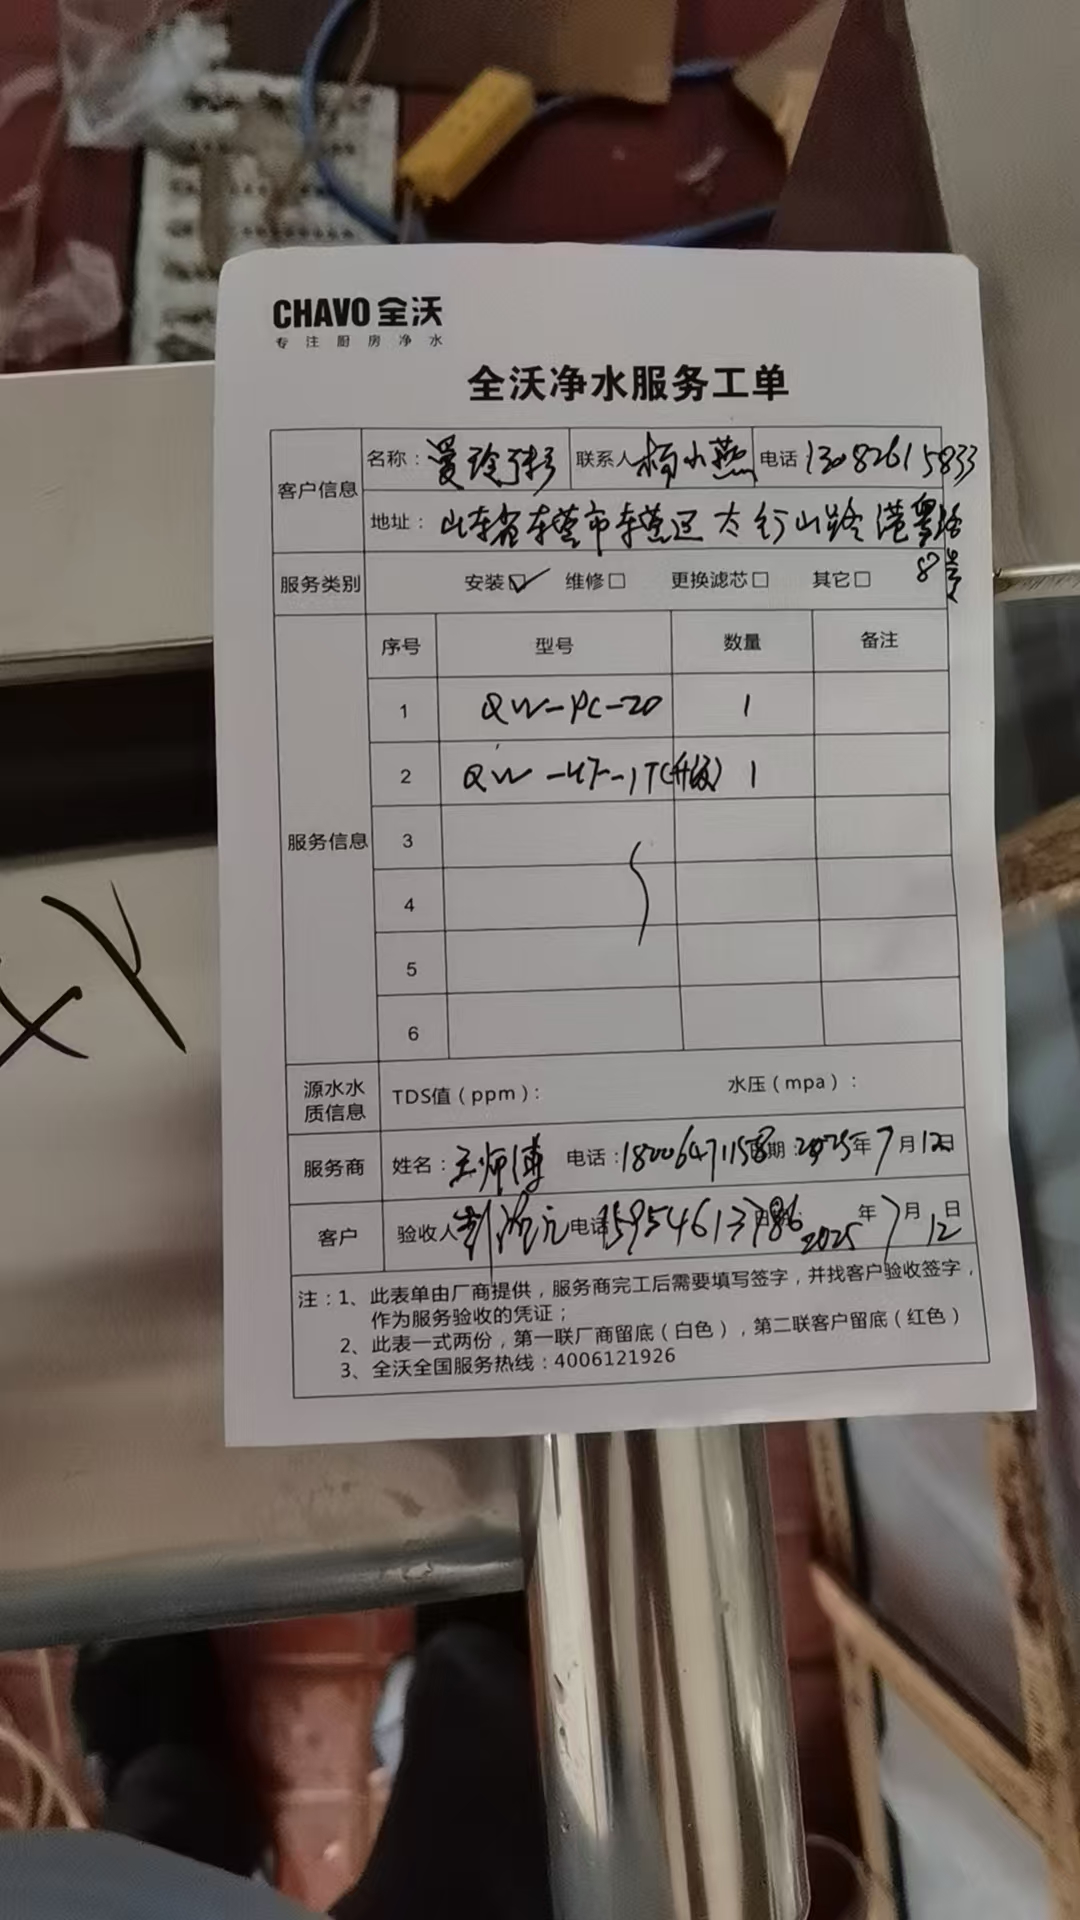 CHAVO 全沃
专注厨房净水
全沃净水服务工单
客户信息 名称：曼玲粥 联系人 杨小燕 电话 13082615833
地址：山东省东营市东营区太行山路港粤路
8号
服务类别 安装☑ 维修□ 更换滤芯□ 其它□
服务信息 序号 型号 数量 备注
1 QW-PC-20 1
2 QW-UF-1T(升级) 1
3
4
5
6
源水水质信息 TDS值（ppm）： 水压（mpa）：
服务商 姓名：王师傅 电话：18006471158 日期：2025年7月12日
客户 验收人 电话 15954613786 2025年7月12日
注：1、此表单由厂商提供，服务商完工后需要填写签字，并找客户验收签字，
作为服务验收的凭证；
2、此表一式两份，第一联厂商留底（白色），第二联客户留底（红色）
3、全沃全国服务热线：4006121926